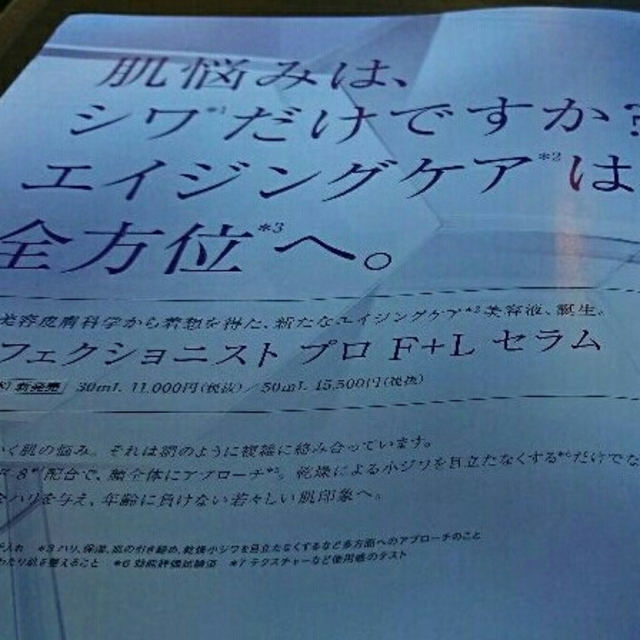 肌悩みは、
シワ*¹だけですか?
エイジングケア*²は
全方位*³へ。
美容皮膚科学から着想を得た、新たなエイジングケア*²美容液、誕生。
フェクショニスト プロ F+L セラム
新発売 30mL 11,000円(税抜)/50mL 15,500円(税抜)
く肌の悩み。それは網のように複雑に絡み合っています。
配合で、顔全体にアプローチ。乾燥による小ジワを目立たなくする*⁶だけでな
ハリを与え、年齢に負けない若々しい肌印象へ。
*3 ハリ、保湿、肌の引き締め、乾燥小ジワを目立たなくするなど多方面へのアプローチのこと
肌を整えること *6 効能評価試験済 *7 テクスチャーなど使用感のテスト